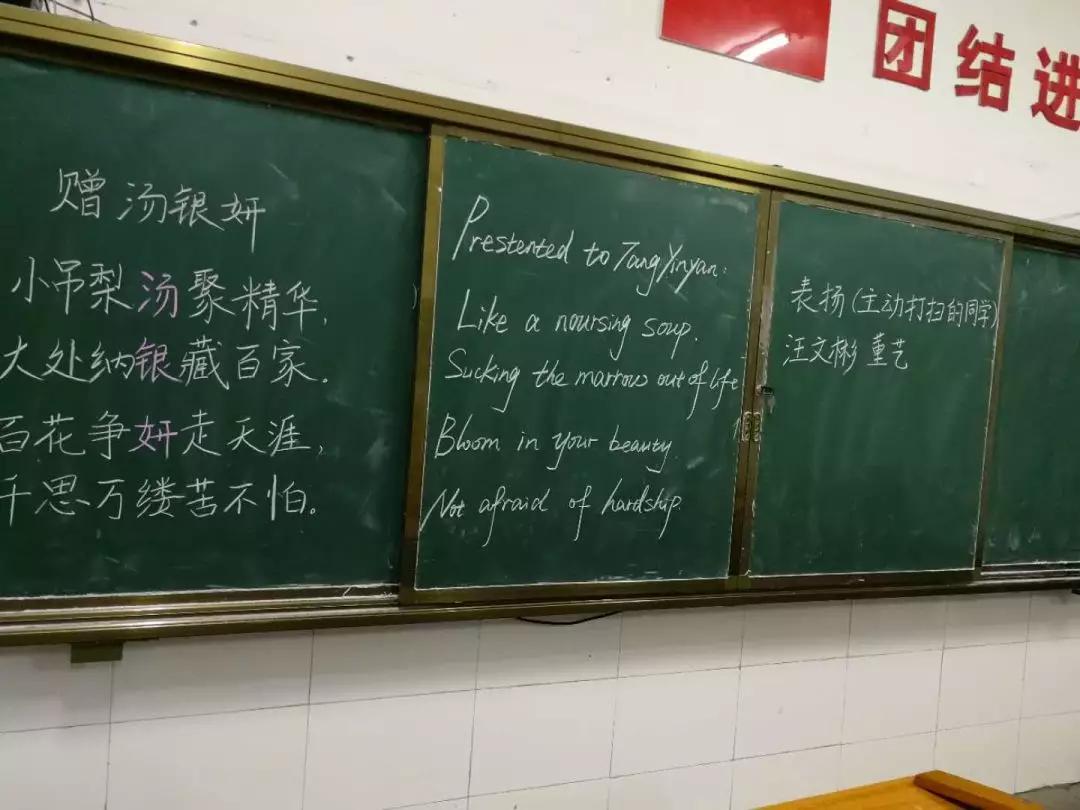 团结进
赠汤银妍
小吊梨汤聚精华,
大处纳银藏百家.
百花争妍走天涯,
千思万缕苦不怕。
Prestented to TangYinyan:
Like a noursing soup.
Sucking the marrows out of life
Bloom in your beauty
Not afraid of hardship.
表扬(主动打扫的同学)
汪文彬 董艺